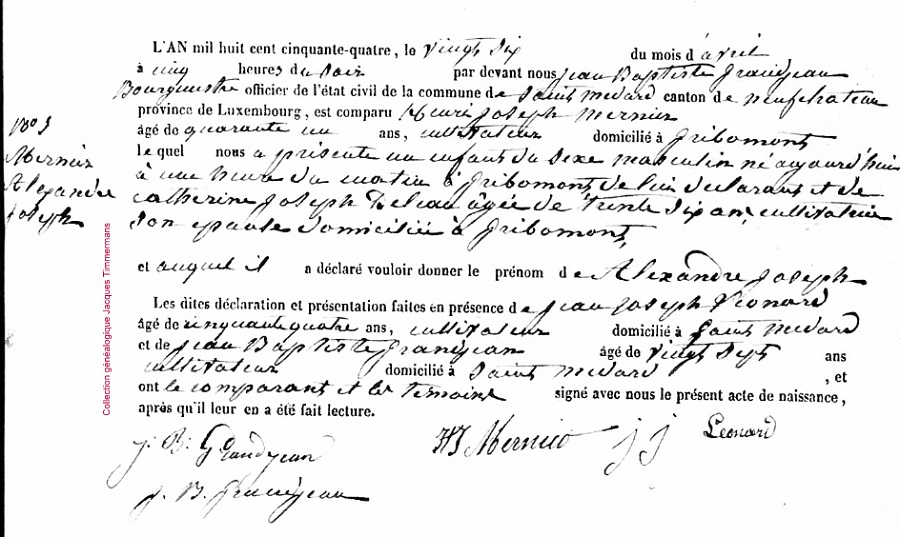 L'AN mil huit cent cinquante-quatre, le vingt six du mois d'avril
à cinq heures du soir par devant nous Jean Baptiste Grandjean
Bourgmestre officier de l'état civil de la commune de Saint Medard canton de neufchateau
province de Luxembourg, est comparu Henri Joseph Mernier
âgé de quarante un ans, cultivateur domicilié à Gribomont
le quel nous a présenté un enfant du sexe masculin né aujourd'hui
à une heure du matin à Gribomont de lui déclarant et de
catherine Joseph agée de trente six ans, cultivatrice
son epouse domiciliée à Gribomont,
et auquel il a déclaré vouloir donner le prénom de Alexandre Joseph
Les dites déclaration et présentation faites en présence de Jean Joseph Léonard
âgé de cinquante quatre ans, cultivateur domicilié à Saint Medard
et de Jean Baptiste Grandjean âgé de vingt sept ans
cultivateur domicilié à Saint Medard , et
ont le comparant et les temoins signé avec nous le présent acte de naissance,
après qu'il leur en a été fait lecture.
J. B. Grandjean HJ Mernier j j Leonard
J. B. Grandjean
Mernier
Alexandre
Joseph
Collection généalogique Jacques Timmermans